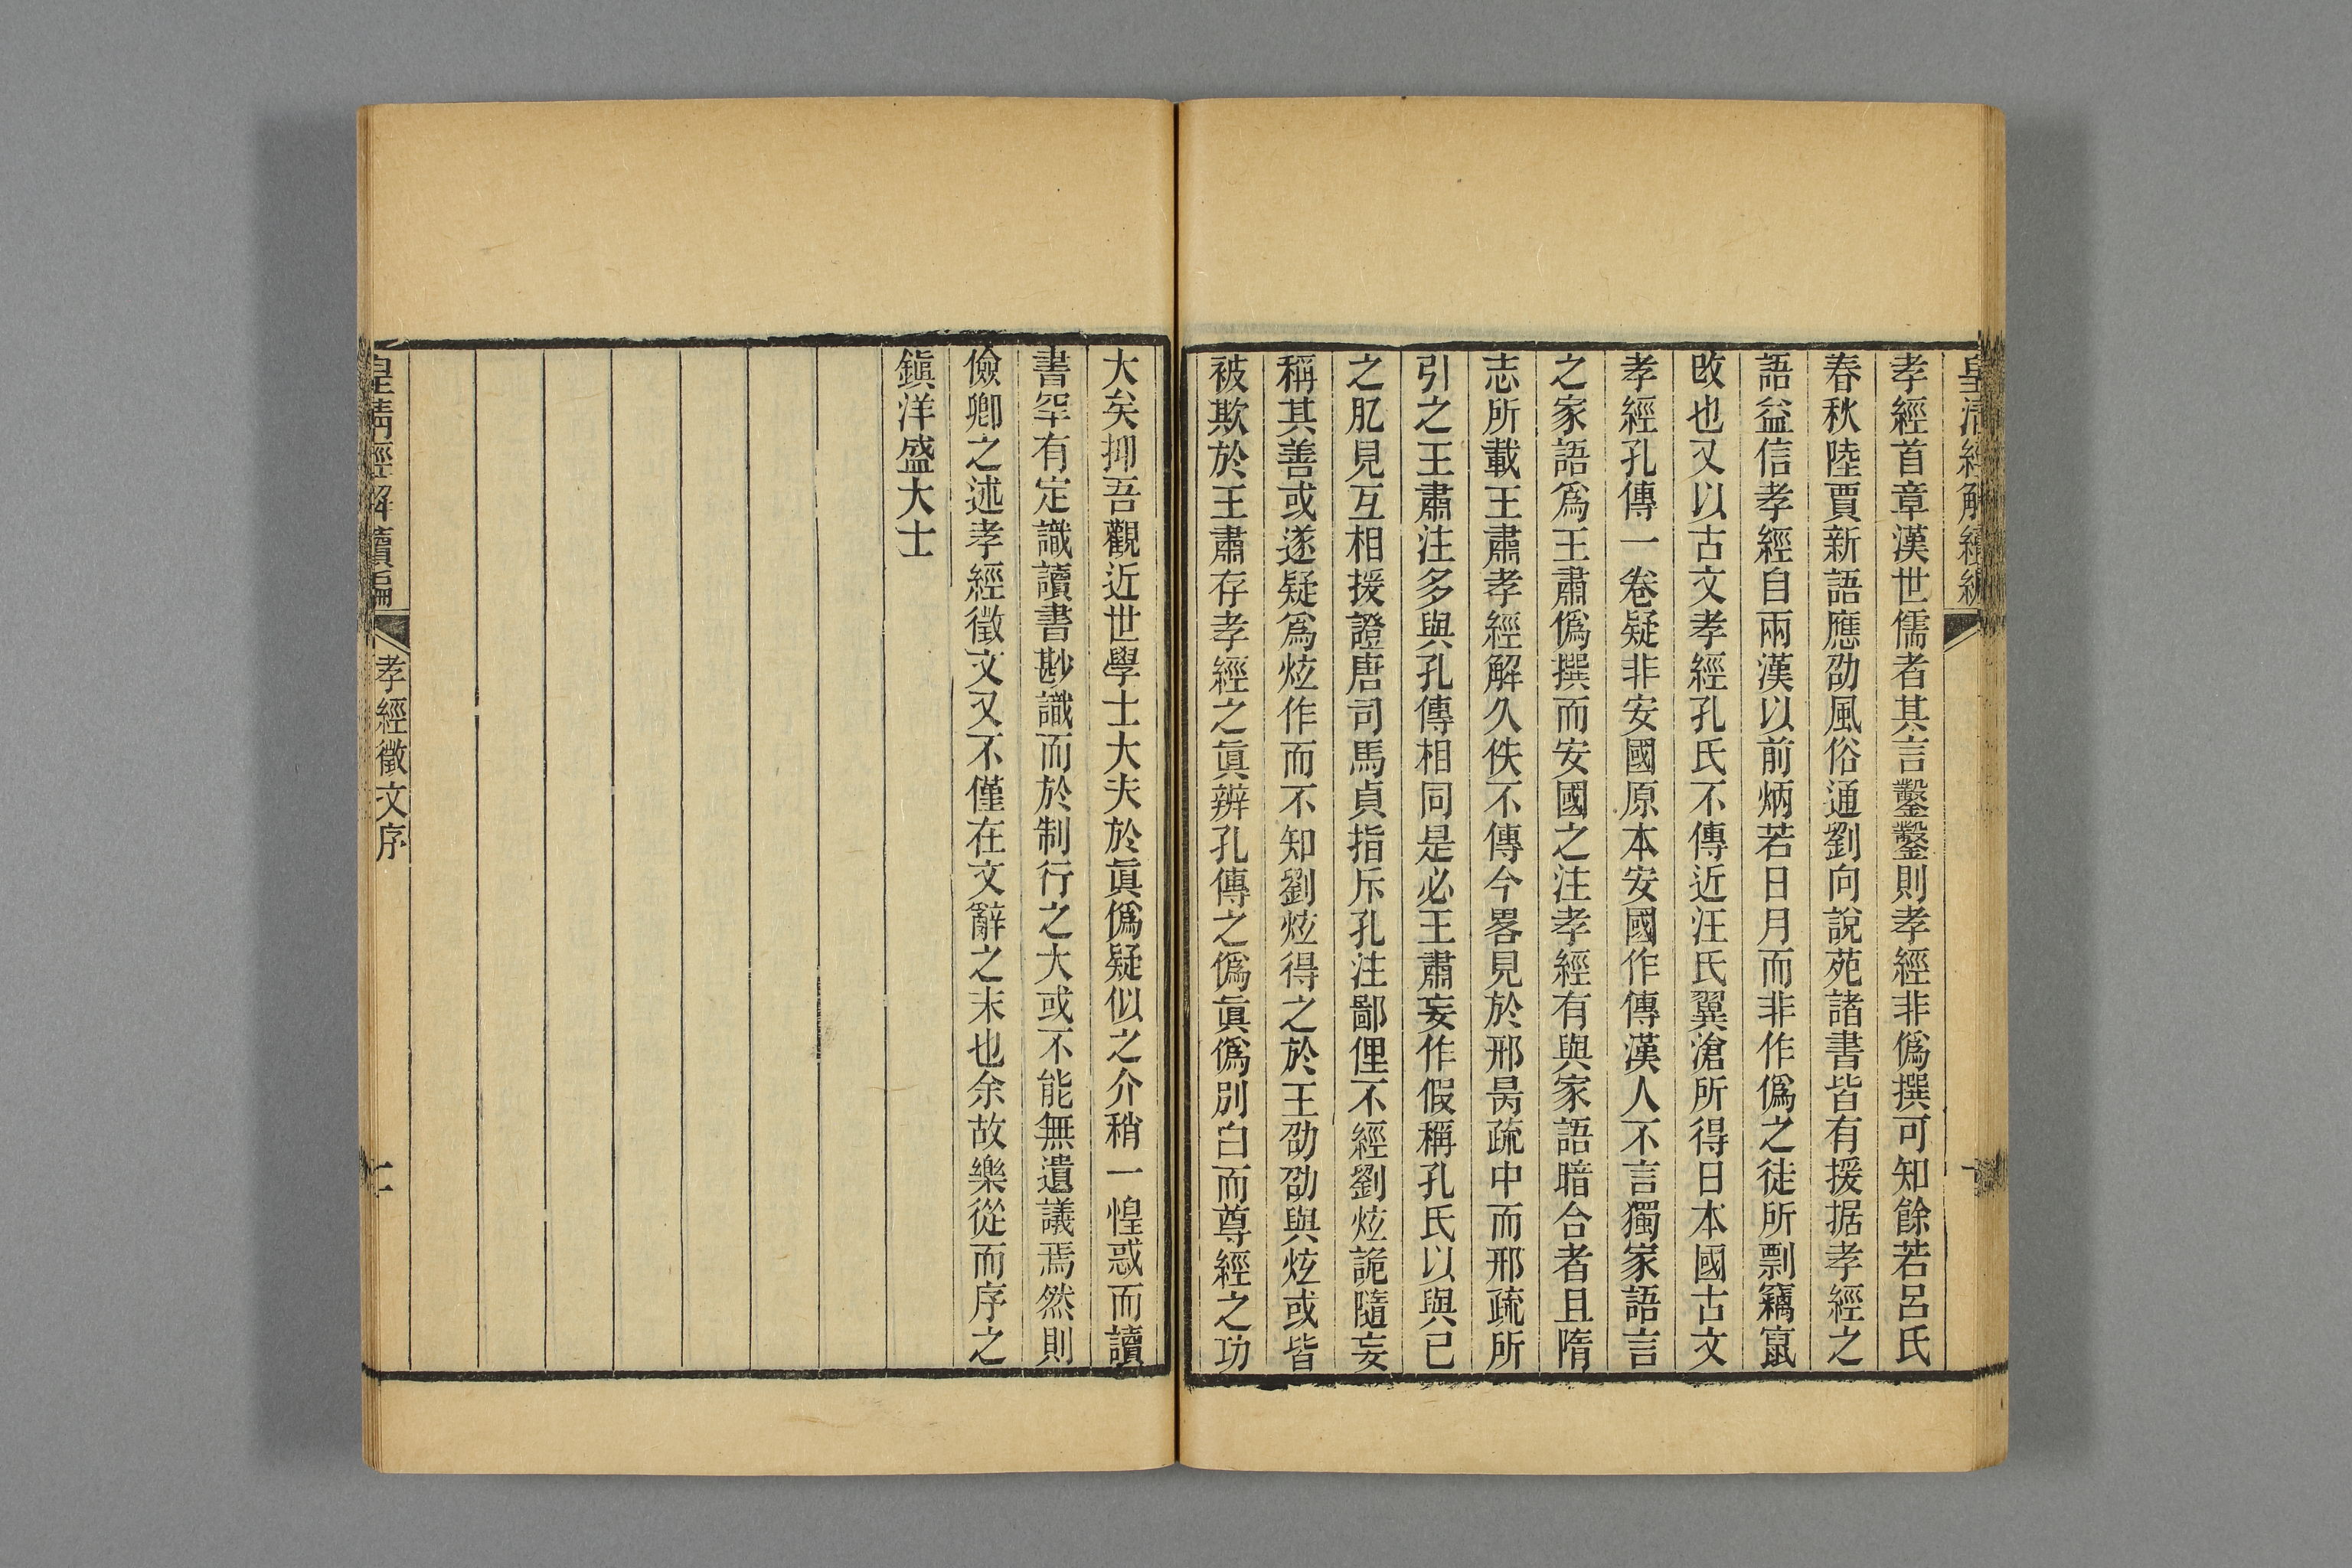 皇清經解續編
孝經首章漢世儒者其言鑿鑿則孝經非僞撰可知餘若呂氏
春秋陸賈新語應劭風俗通劉向說苑諸書皆有援据孝經之
語益信孝經自兩漢以前炳若日月而非作僞之徒所剽竊竄
改也又以古文孝經孔氏不傳近汪氏翼滄所得日本國古文
孝經孔傳一卷疑非安國原本安國作傳漢人不言獨家語言
之家語爲王肅僞撰而安國之注孝經有與家語暗合者且隋
志所載王肅孝經解久佚不傳今畧見於邢昺疏中而邢疏所
引之王肅注多與孔傳相同是必王肅妄作假稱孔氏以與已
之肊見互相援證唐司馬貞指斥孔注鄙俚不經劉炫詭隨妄
稱其善或遂疑爲炫作而不知劉炫得之於王劭劭與炫或皆
被欺於王肅存孝經之眞辨孔傳之僞眞僞別白而尊經之功
大矣抑吾觀近世學士大夫於眞僞疑似之介稍一惶惑而讀
書罕有定識讀書尠識而於制行之大或不能無遺議焉然則
儉卿之述孝經徵文又不僅在文辭之末也余故樂從而序之
鎭洋盛大士
皇清經解續編
孝經徵文序